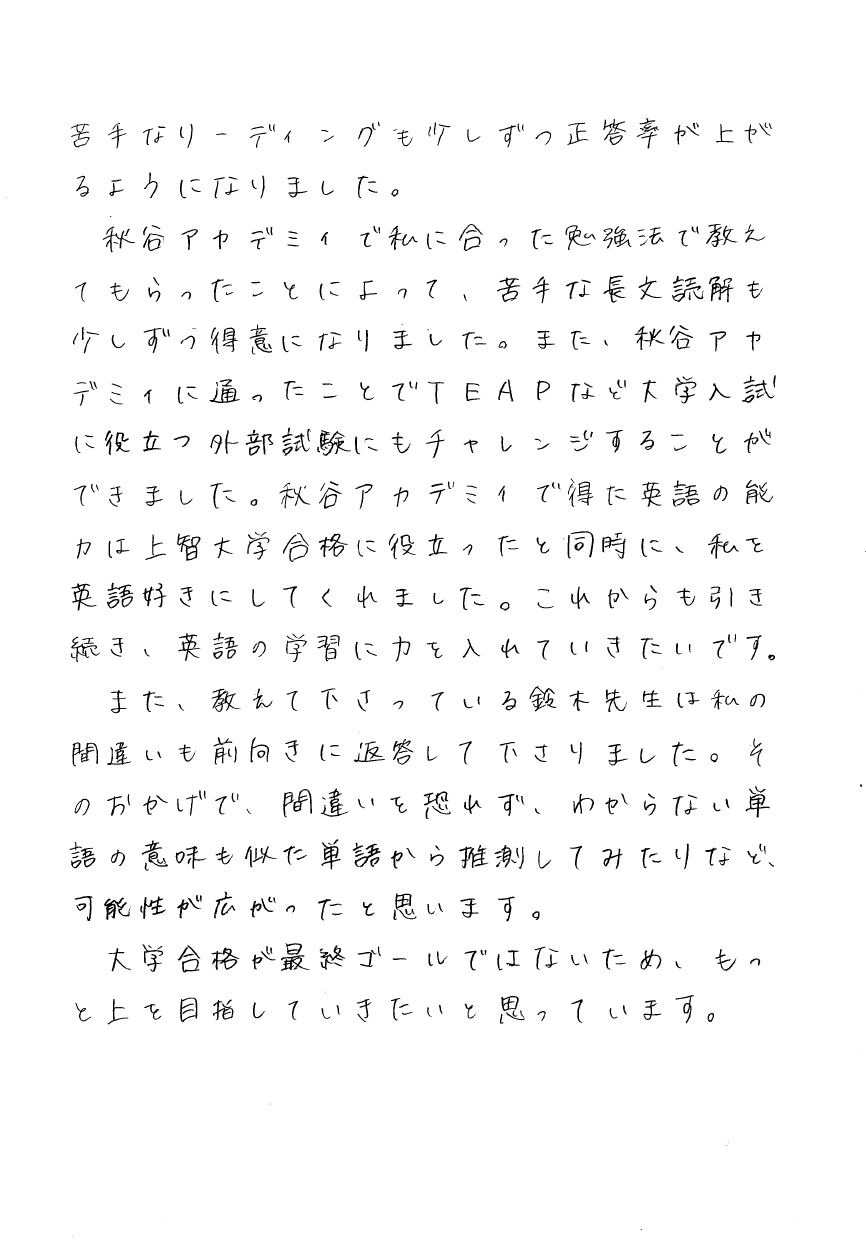 苦手なリーディングも少しずつ正答率が上が
るようになりました。
秋谷アカデミィで私に合った勉強法で教え
てもらったことによって、苦手な長文読解も
少しずつ得意になりました。また、秋谷アカ
デミィに通ったことでTEAPなど大学入試
に役立つ外部試験にもチャレンジすることが
できました。秋谷アカデミィで得た英語の能
力は上智大学合格に役立ったと同時に、私を
英語好きにしてくれました。これからも引き
続き、英語の学習に力を入れていきたいです。
また、教えて下さっている鈴木先生は私の
間違いも前向きに返答して下さりました。そ
のおかげで、間違いを恐れず、わからない単
語の意味も似た単語から推測してみたりなど、
可能性が広がったと思います。
大学合格が最終ゴールではないため、もっ
と上を目指していきたいと思っています。